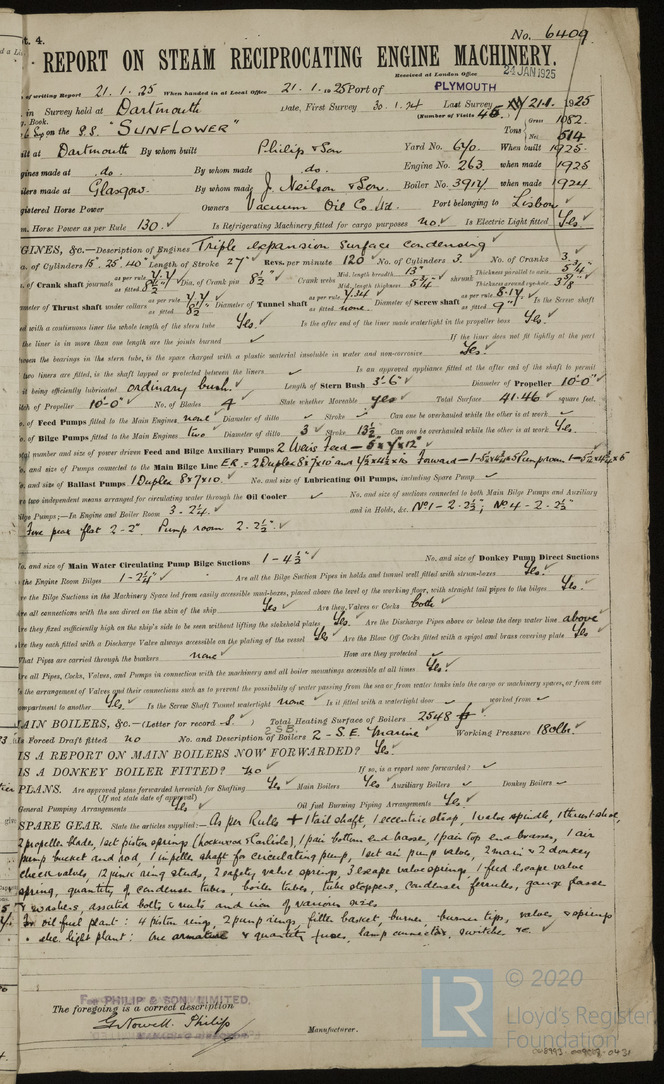 t. 4.
No. 6409
REPORT ON STEAM RECIPROCATING ENGINE MACHINERY.
Received at London Office 24 JAN 1925
of writing Report 21.1.25 When handed in at Local Office 21.1.1925 Port of PLYMOUTH
in Survey held at Dartmouth Date, First Survey 30.1.24 Last Survey 21.1.1925
Book. (Number of Visits 45.)
on the S.S. "SUNFLOWER" Tons Gross 1082 Net 514
ilt at Dartmouth By whom built Philip & Son Yard No. 640. When built 1925
gines made at do. By whom made do. Engine No. 263 when made 1925
ilers made at Glasgow. By whom made J. Neilson & Son. Boiler No. 3914 when made 1924
gistered Horse Power Owners Vacuum Oil Co. Ltd. Port belonging to Lisbon
m. Horse Power as per Rule 130. Is Refrigerating Machinery fitted for cargo purposes no. Is Electric Light fitted Yes.
GINES, &c.—Description of Engines Triple expansion surface condensing
of Cylinders 15" 25" 40" Length of Stroke 27" Revs. per minute 120 No. of Cylinders 3. No. of Cranks 3
of Crank shaft journals as per rule as fitted 8½" Dia. of Crank pin 8½" Crank webs Mid. length breadth 13" Mid. length thickness 5¾" shrunk Thickness parallel to axis 5¾" Thickness around eye-hole
meter of Thrust shaft under collars as per rule as fitted 8½ Diameter of Tunnel shaft as per rule 7.34 as fitted none. Diameter of Screw shaft as per rule as fitted 9" Is the Screw shaft
ed with a continuous liner the whole length of the stern tube Yes. Is the after end of the liner made watertight in the propeller boss Yes.
the liner is in more than one length are the joints burned If the liner does not fit tightly at the part
ween the bearings in the stern tube, is the space charged with a plastic material insoluble in water and non-corrosive Yes.
two liners are fitted, is the shaft lapped or protected between the liners Is an approved appliance fitted at the after end of the shaft to permit
it being efficiently lubricated ordinary bush. Length of Stern Bush 3'-6" Diameter of Propeller 10'-0"
tch of Propeller 10'-0" No. of Blades 4 State whether Moveable yes Total Surface 41.46 square feet.
of Feed Pumps fitted to the Main Engines none Diameter of ditto Stroke Can one be overhauled while the other is at work
of Bilge Pumps fitted to the Main Engines two Diameter of ditto 3 Stroke 13½ Can one be overhauled while the other is at work Yes.
tal number and size of power driven Feed and Bilge Auxiliary Pumps 2 Weirs Feed
and size of Pumps connected to the Main Bilge Line E.R. = 2 Duplex 8x7x10
and size of Ballast Pumps 1 Duplex 8x7x10. No. and size of Lubricating Oil Pumps, including Spare Pump
re two independent means arranged for circulating water through the Oil Cooler No. and size of suctions connected to both Main Bilge Pumps and Auxiliary
ilge Pumps;—In Engine and Boiler Room 3 - 2¼. and in Holds, &c. No 1 - 2 - 2½"; No 4 - 2 - 2½"
Fore peak flat 2 - 2". Pump room 2 - 2½".
o. and size of Main Water Circulating Pump Bilge Suctions 1 - 4½" No. and size of Donkey Pump Direct Suctions
the Engine Room Bilges 1 - 2¼" Are all the Bilge Suction Pipes in holds and tunnel well fitted with strum-boxes Yes.
re the Bilge Suctions in the Machinery Space led from easily accessible mud-boxes, placed above the level of the working floor, with straight tail pipes to the bilges Yes.
re all connections with the sea direct on the skin of the ship Yes Are they Valves or Cocks both
re they fixed sufficiently high on the ship's side to be seen without lifting the stokehold plates Yes. Are the Discharge Pipes above or below the deep water line above
re they each fitted with a Discharge Valve always accessible on the plating of the vessel Yes Are the Blow Off Cocks fitted with a spigot and brass covering plate Yes
What Pipes are carried through the bunkers none How are they protected
re all Pipes, Cocks, Valves, and Pumps in connection with the machinery and all boiler mountings accessible at all times Yes.
s the arrangement of Valves and their connections such as to prevent the possibility of water passing from the sea or from water tanks into the cargo or machinery spaces, or from one
ompartment to another Yes. Is the Screw Shaft Tunnel watertight none Is it fitted with a watertight door worked from
AIN BOILERS, &c.—(Letter for record S.) Total Heating Surface of Boilers 2548
2 S.B.
Is Forced Draft fitted no No. and Description of Boilers 2 - S.E. Marine Working Pressure 180 lbs.
IS A REPORT ON MAIN BOILERS NOW FORWARDED? Yes.
IS A DONKEY BOILER FITTED? No If so, is a report now forwarded?
PLANS. Are approved plans forwarded herewith for Shafting Yes Main Boilers Yes Auxiliary Boilers Donkey Boilers
(If not state date of approval)
General Pumping Arrangements Yes Oil fuel Burning Piping Arrangements Yes
SPARE GEAR. State the articles supplied:— As per Rules + 1 tail shaft, 1 eccentric strap, 1 valve spindle, 1 thrust shoe,
2 propeller blades, 1 set piston springs (Lockwood & Carlisle), 1 pair bottom end brasses, 1 pair top end brasses, 1 air
pump bucket and rod, 1 impeller shaft for circulating pump, 1 set air pump valves, 2 main & 2 donkey
check valves, 12 junk ring studs, 2 safety valve springs, 3 escape valve springs, 1 feed escape valve
spring, quantity of condenser tubes, boiler tubes, tube stoppers, condenser ferrules, gauge glasses
& washers, assorted bolts & nuts and iron of various sizes.
For oil fuel plant: 4 piston rings, 2 pump rings, filter basket, burner, burner tips, valves & springs
elec light plant: One armature & quantity fuses, lamp connector, switches &c.
For PHILIP & SON, LIMITED,
The foregoing is a correct description
G. Nowell Philip
Manufacturer.
LR © 2020
Lloyd's Register
Foundation